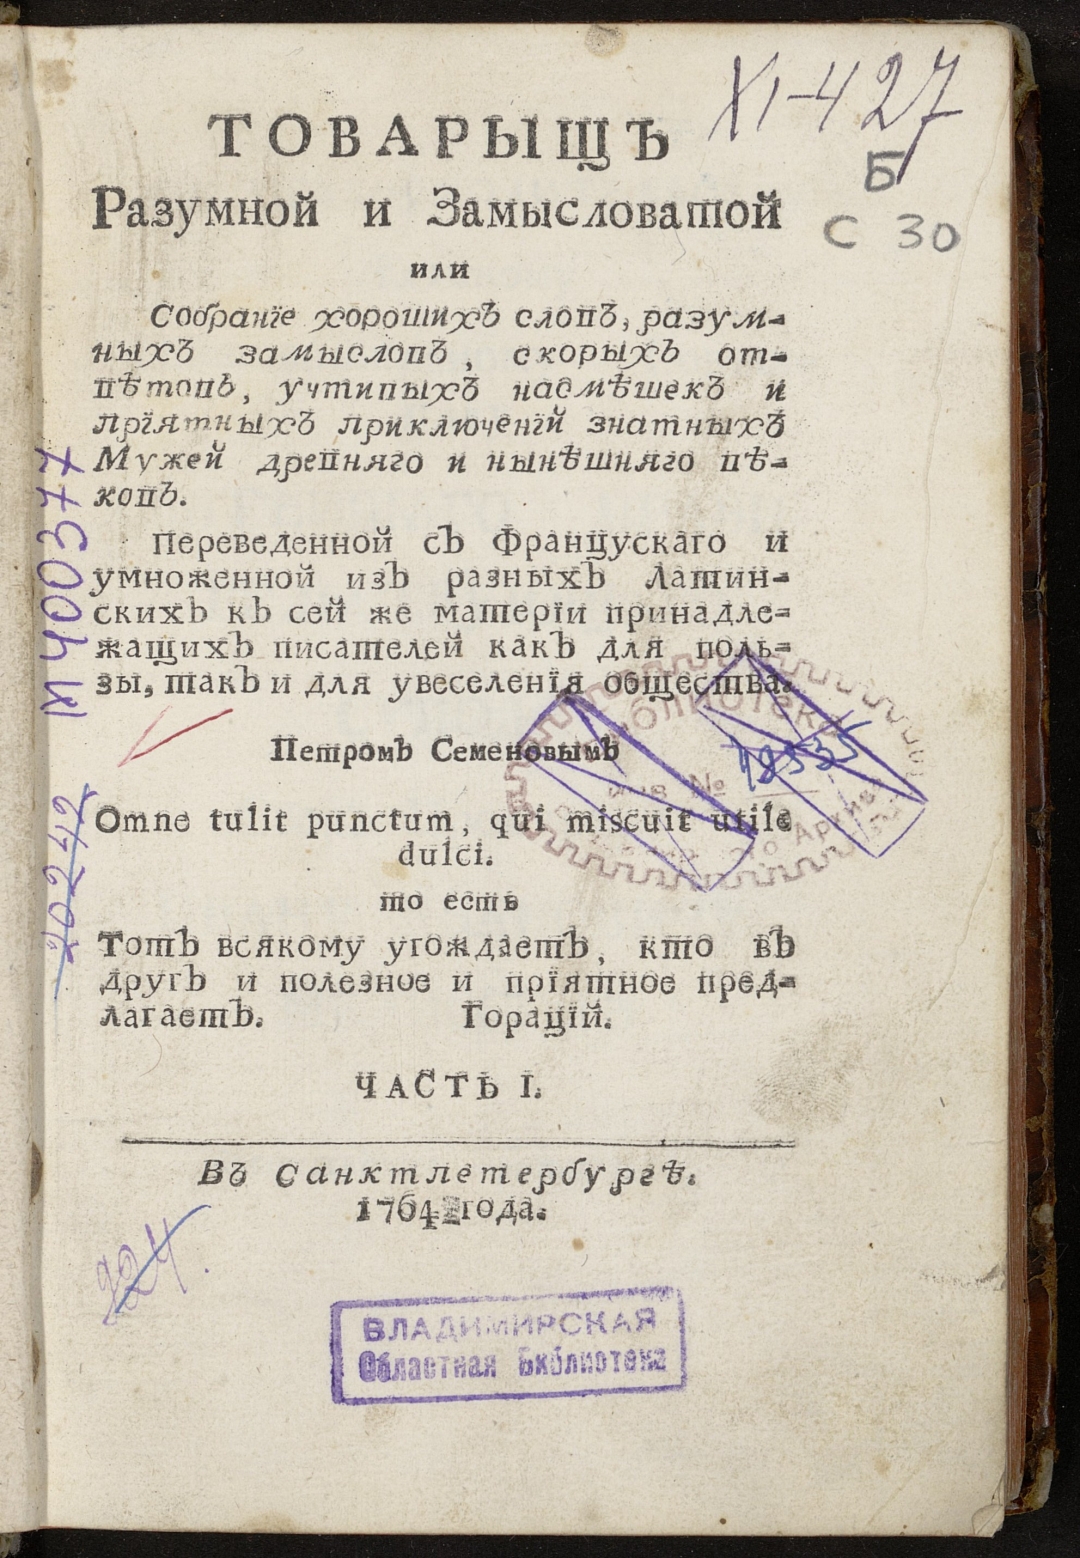 XI-427
Б
С 30
ТОВАРЫЩЪ
Разумной и Замысловатой
или
Собранїе хорошихъ словъ, разум-
ныхъ замысловъ, скорыхъ от-
вѣтовъ, учтивыхъ насмѣшекъ и
прїятныхъ приключенїй знатныхъ
Мужей древняго и нынѣшняго вѣ-
ковъ.
Переведенной съ Французскаго и
умноженной изъ разныхъ Латин-
скихъ къ сей же матерїи принадле-
жащихъ писателей какъ для поль-
зы, такъ и для увеселенїя общества.
Петромъ Семеновымъ
Omne tulit punctum, qui miscuit utile
dulci.
то есть
Тотъ всякому угождаетъ, кто въ
другъ и полезное и прїятное пред-
лагаетъ. Горацїй.
ЧАСТЬ I.
Въ Санктпетербургѣ.
1764 года.
М400377
20242
библиотека
№
Архив
ВЛАДИМИРСКАЯ
Областная Библиотека